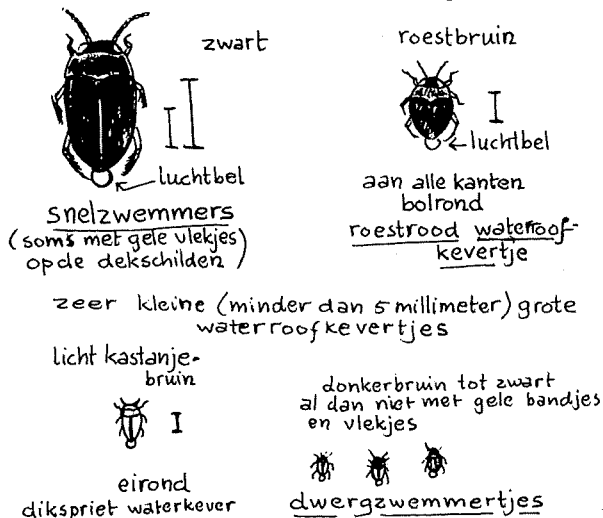 zwart
luchtbel
snelzwemmers
(soms met gele vlekjes)
op de dekschilden
roestbruin
luchtbel
aan alle kanten
bolrond
roestrood waterroof-
kevertje
zeer kleine (minder dan 5 millimeter) grote
waterroofkevertjes
licht kastanje-
bruin
eirond
dikspriet waterkever
donkerbruin tot zwart
al dan niet met gele bandjes
en vlekjes
dwergzwemmertjes